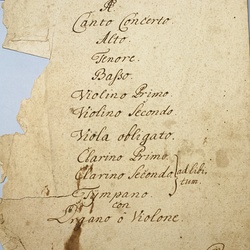 A
Canto Concerto.
Alto.
Tenore.
Basso.
Violino Primo.
Violino Secondo.
Viola obligato.
Clarino Primo.
Clarino Secondo. ad libi
tum.
Tympano.
con
Organo ô Violone.